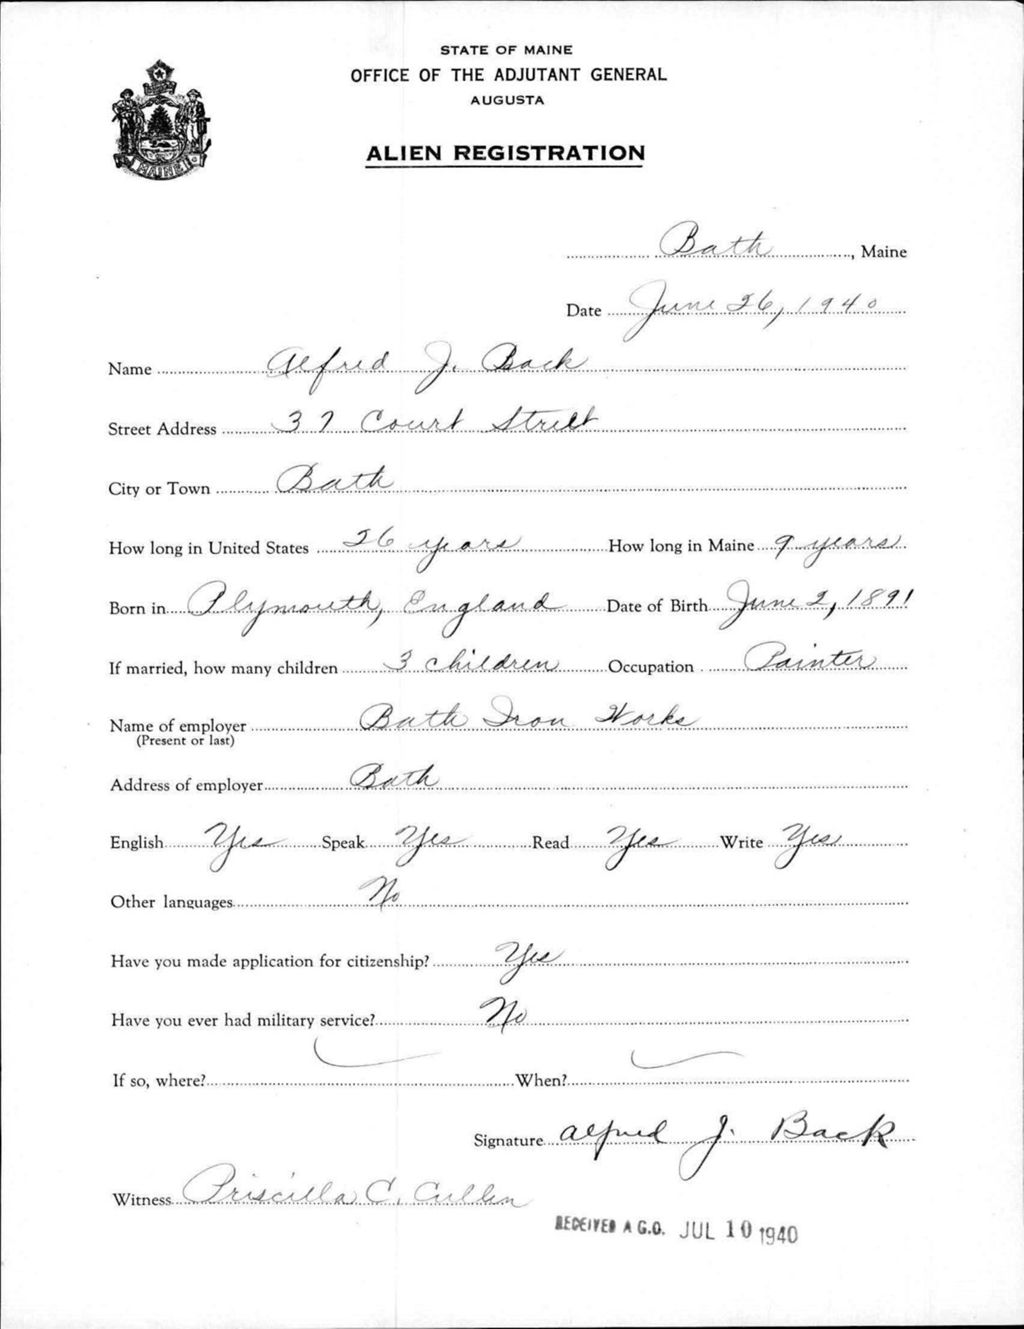 STATE OF MAINE
OFFICE OF THE ADJUTANT GENERAL
AUGUSTA
ALIEN REGISTRATION
MAINE
Bath, Maine
Date June 26, 1940
Name Alfred J. Back
Street Address 37 Court Street
City or Town Bath
How long in United States 26 years How long in Maine 9 years
Born in Plymouth, England Date of Birth June 2, 1891
If married, how many children 3 children Occupation Painter
Name of employer Bath Iron Works
(Present or last)
Address of employer Bath
English Yes Speak Yes Read Yes Write Yes
Other languages No
Have you made application for citizenship? Yes
Have you ever had military service? No
If so, where? When?
Signature Alfred J. Back
Witness Priscilla C. Cullen
RECEIVED A G.O. JUL 10 1940